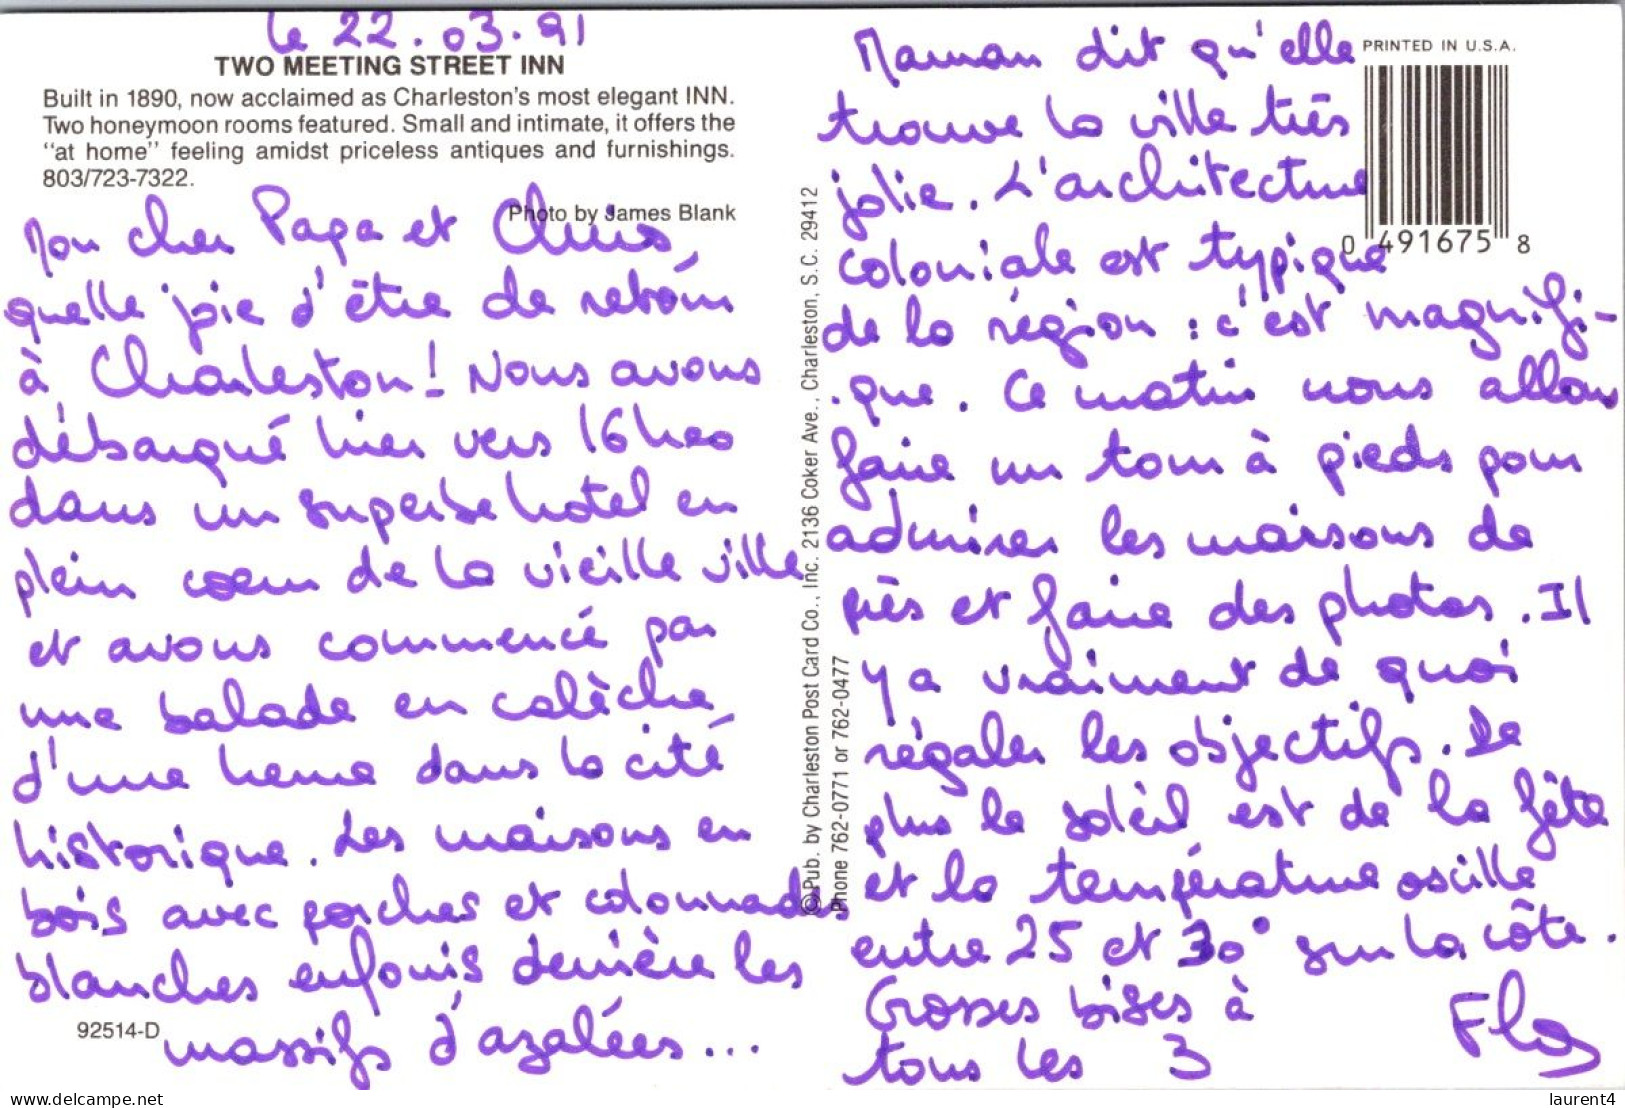 le 22.03.91
TWO MEETING STREET INN
Built in 1890, now acclaimed as Charleston's most elegant INN.
Two honeymoon rooms featured. Small and intimate, it offers the
"at home" feeling amidst priceless antiques and furnishings.
803/723-7322.
Photo by James Blank
Mon cher Papa et Chris,
quelle joie d'être de retour
à Charleston! Nous avons
débarqué hier vers 16h00
dans un superbe hotel en
plein cœur de la vieille ville
et avons commencé par
une balade en calèche
d'une heure dans la cité
historique. Les maisons en
bois avec porches et colonnades
blanches enfouis derrière les
massifs d'azalées...
92514-D
©Pub. by Charleston Post Card Co., Inc. 2136 Coker Ave., Charleston, S.C. 29412
Phone 762-0771 or 762-0477
PRINTED IN U.S.A.
0 491675 8
Maman dit qu'elle
trouve la ville très
jolie. L'architecture
coloniale est typique
de la région : c'est magnifi-
que. Ce matin nous allons
faire un tour à pieds pour
admirer les maisons de
près et faire des photos. Il
y a vraiment de quoi
régaler les objectifs. De
plus le soleil est de la fête
et la température oscille
entre 25 et 30° sur la côte.
Grosses bises à
tous les 3
Flo
www.delcampe.net
laurent4